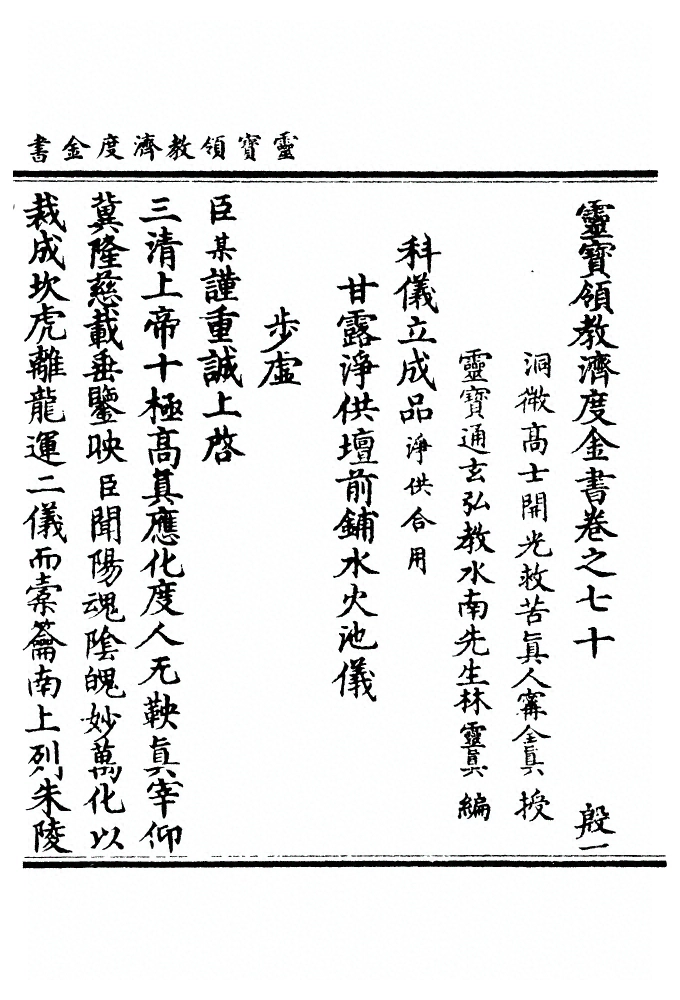 靈寶領教濟度金書
靈寶領教濟度金書卷之七十 殷一
洞微高士開光救苦眞人甯全眞 授
靈寶通玄弘教水南先生林靈眞 編
科儀立成品 淨供合用
甘露淨供壇前鋪水火池儀
步虛
臣某謹重誠上啓
三清上帝十極高眞應化度人无鞅眞宰仰
冀隆慈載垂鑒映臣聞陽魂陰魄妙萬化以
裁成坎虎離龍運二儀而橐籥南上列朱陵